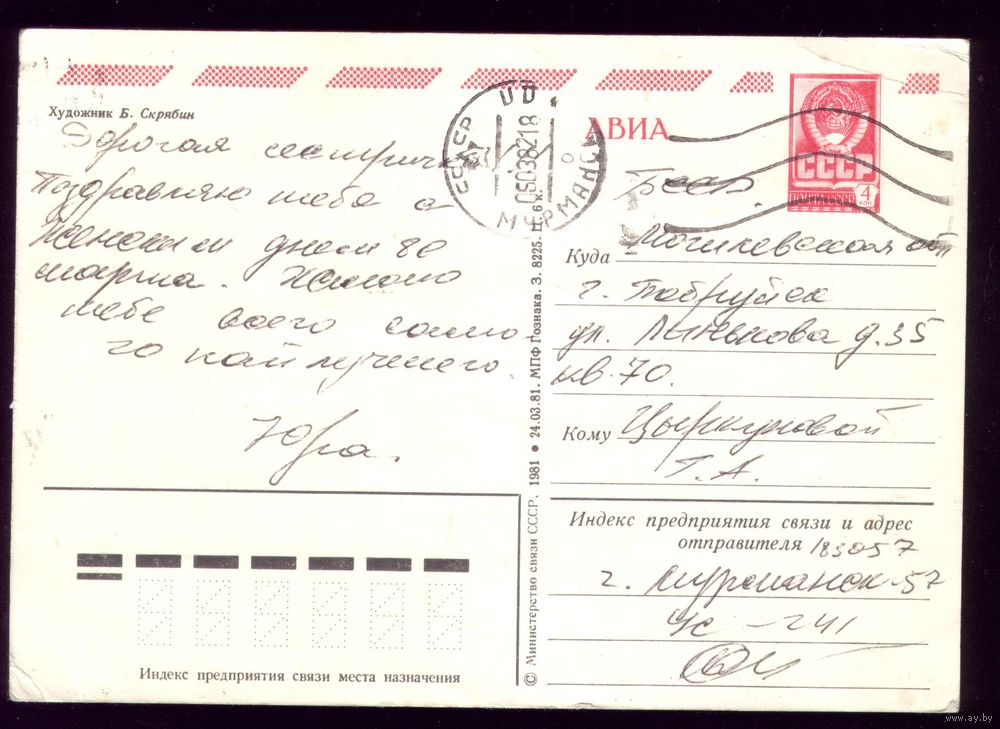 Художник Б. Скрябин
Дорогая сестричка!
Поздравляю тебя с
Женским днем 8е
марта. Желаю
тебе всего само-
го наилучшего.
Юра.
АВИА
СССР
ПОЧТА СССР
4
коп
СССР
МУРМАНСК
06038218
Бсср
Куда Могилевская обл
г. Бобруйск
ул. Линькова д. 35
кв. 70.
Кому Цыркуновой
Т. А.
© Министерство связи СССР, 1981 ● 24.03.81. МПФ Гознака. З. 8225. Ц. 6 к.
Индекс предприятия связи и адрес
отправителя 183057
г. Мурманск-57
Индекс предприятия связи места назначения
www.ay.by